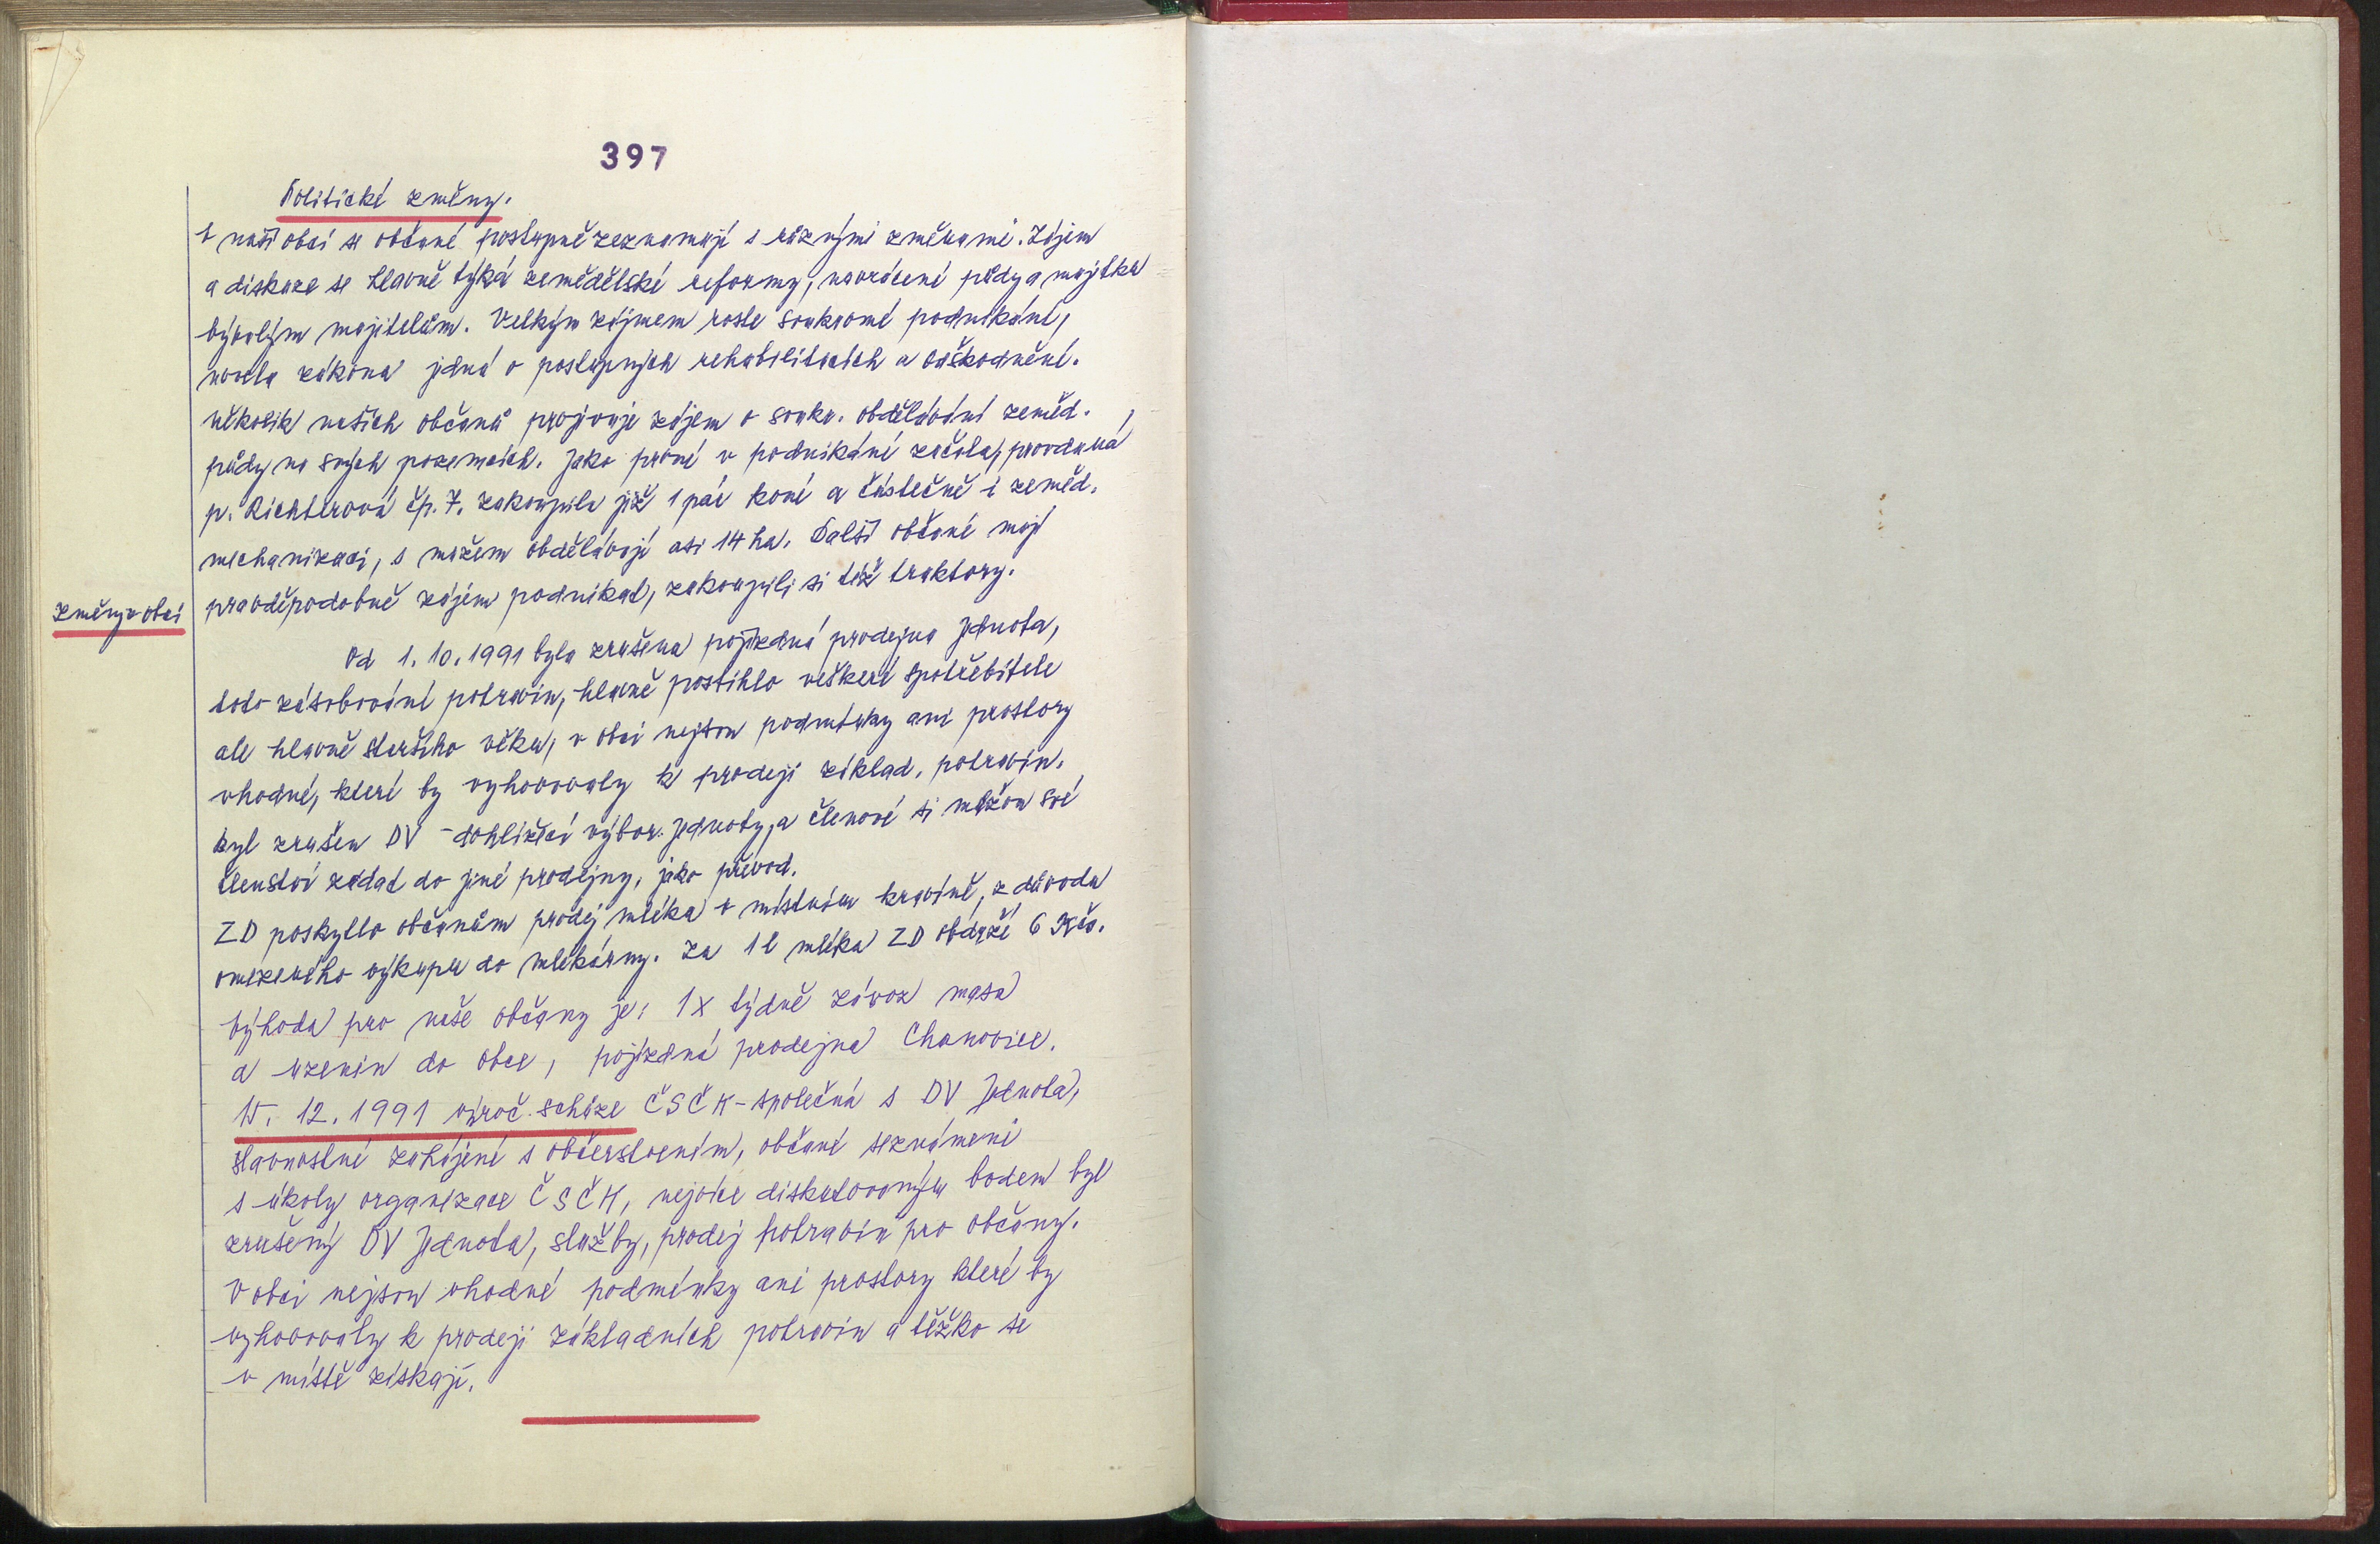 397
Politické změny.
V naší obci se občané postupně seznamují s různými změnami. Zájem
a diskuze se hlavně týká zemědělské reformy, navrácení půdy a majetku
bývalým majitelům. Velkým zájmem roste soukromé podnikání,
novela zákona jedná o postupných rehabilitacích a odškodnění.
několik našich občanů projevuje zájem o soukr. obdělávání zeměd.
půdy na svých pozemcích. Jako první v podnikání začala, provdaná
p. Richterová čp. 7. zakoupila již 1 pár koní a částečně i zeměd.
mechanizaci, s mužem obdělávají asi 14 ha. Další občané mají
pravděpodobně zájem podnikat, zakoupili si též traktory.
změny v obci
Od 1. 10. 1991 byla zrušena pojízdná prodejna Jednota,
toto zásobování potravin, hlavně postihlo veškeré spotřebitele
ale hlavně staršího věku, v obci nejsou podmínky ani prostory
vhodné, které by vyhovovaly k prodeji základ. potravin.
byl zrušen DV - dohlížecí výbor Jednoty, a členové si můžou své
členství zadat do jiné prodejny, jako převod.
ZD poskytlo občanům prodej mléka v místním kravíně, z důvodu
omezeného výkupu do mlékárny. Za 1 l mléka ZD obdrží 6 Kčs.
Výhoda pro naše občany je: 1x týdně závoz masa
a uzenin do obce, pojízdná prodejna Chanovice.
15. 12. 1991 výroč. schůze ČSČK - společná s DV Jednota,
slavnostní zahájení s občerstvením, občané seznámeni
s úkoly organizace ČSČK, nejvíce diskutovaným bodem byl
zrušený DV Jednota, služby, prodej potravin pro občany.
V obci nejsou vhodné podmínky ani prostory které by
vyhovovaly k prodeji základních potravin a těžko se
v místě získají.